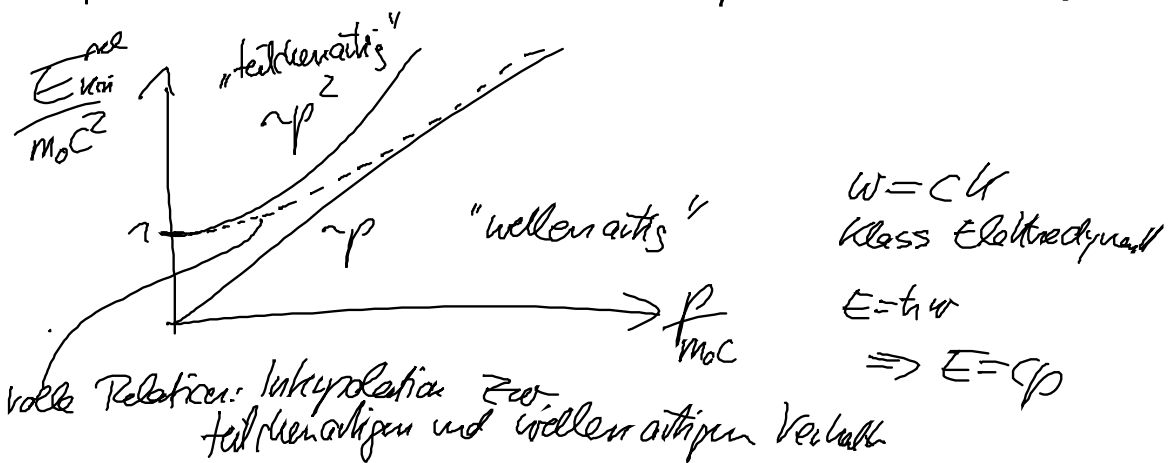 E_kin^rel / m₀c²
"teilchenartig"
~p²
1
~p
"wellenartig"
p / m₀c
ω = ck
Klass Elektrodynamik
E = ħω
⇒ E = cp
volle Relation: Interpolation zw
teilchenartigen und wellenartigen Verhalten